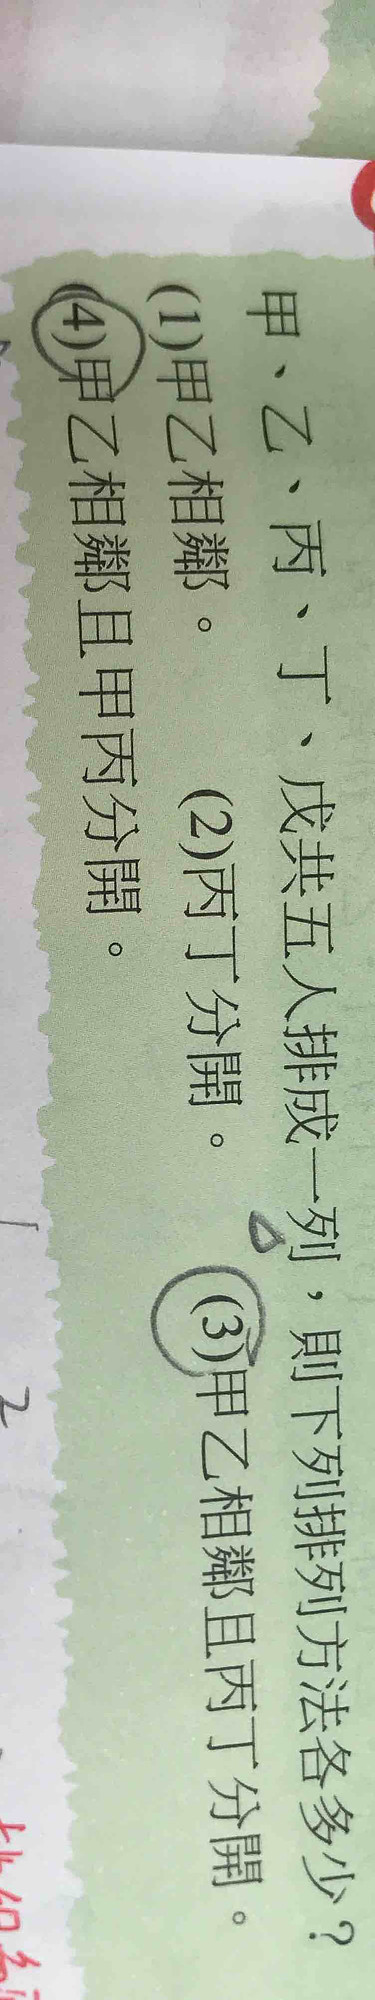 甲、乙、丙、丁、戊共五人排成一列，則下列排列方法各多少？
(1)甲乙相鄰。 (2)丙丁分開。 (3)甲乙相鄰且丙丁分開。
(4)甲乙相鄰且甲丙分開。
2